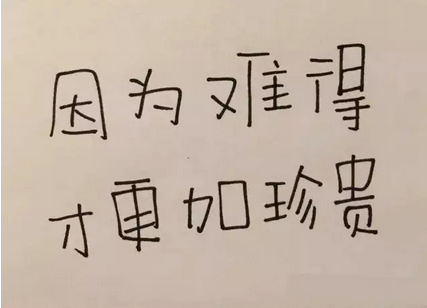 因为难得
才更加珍贵